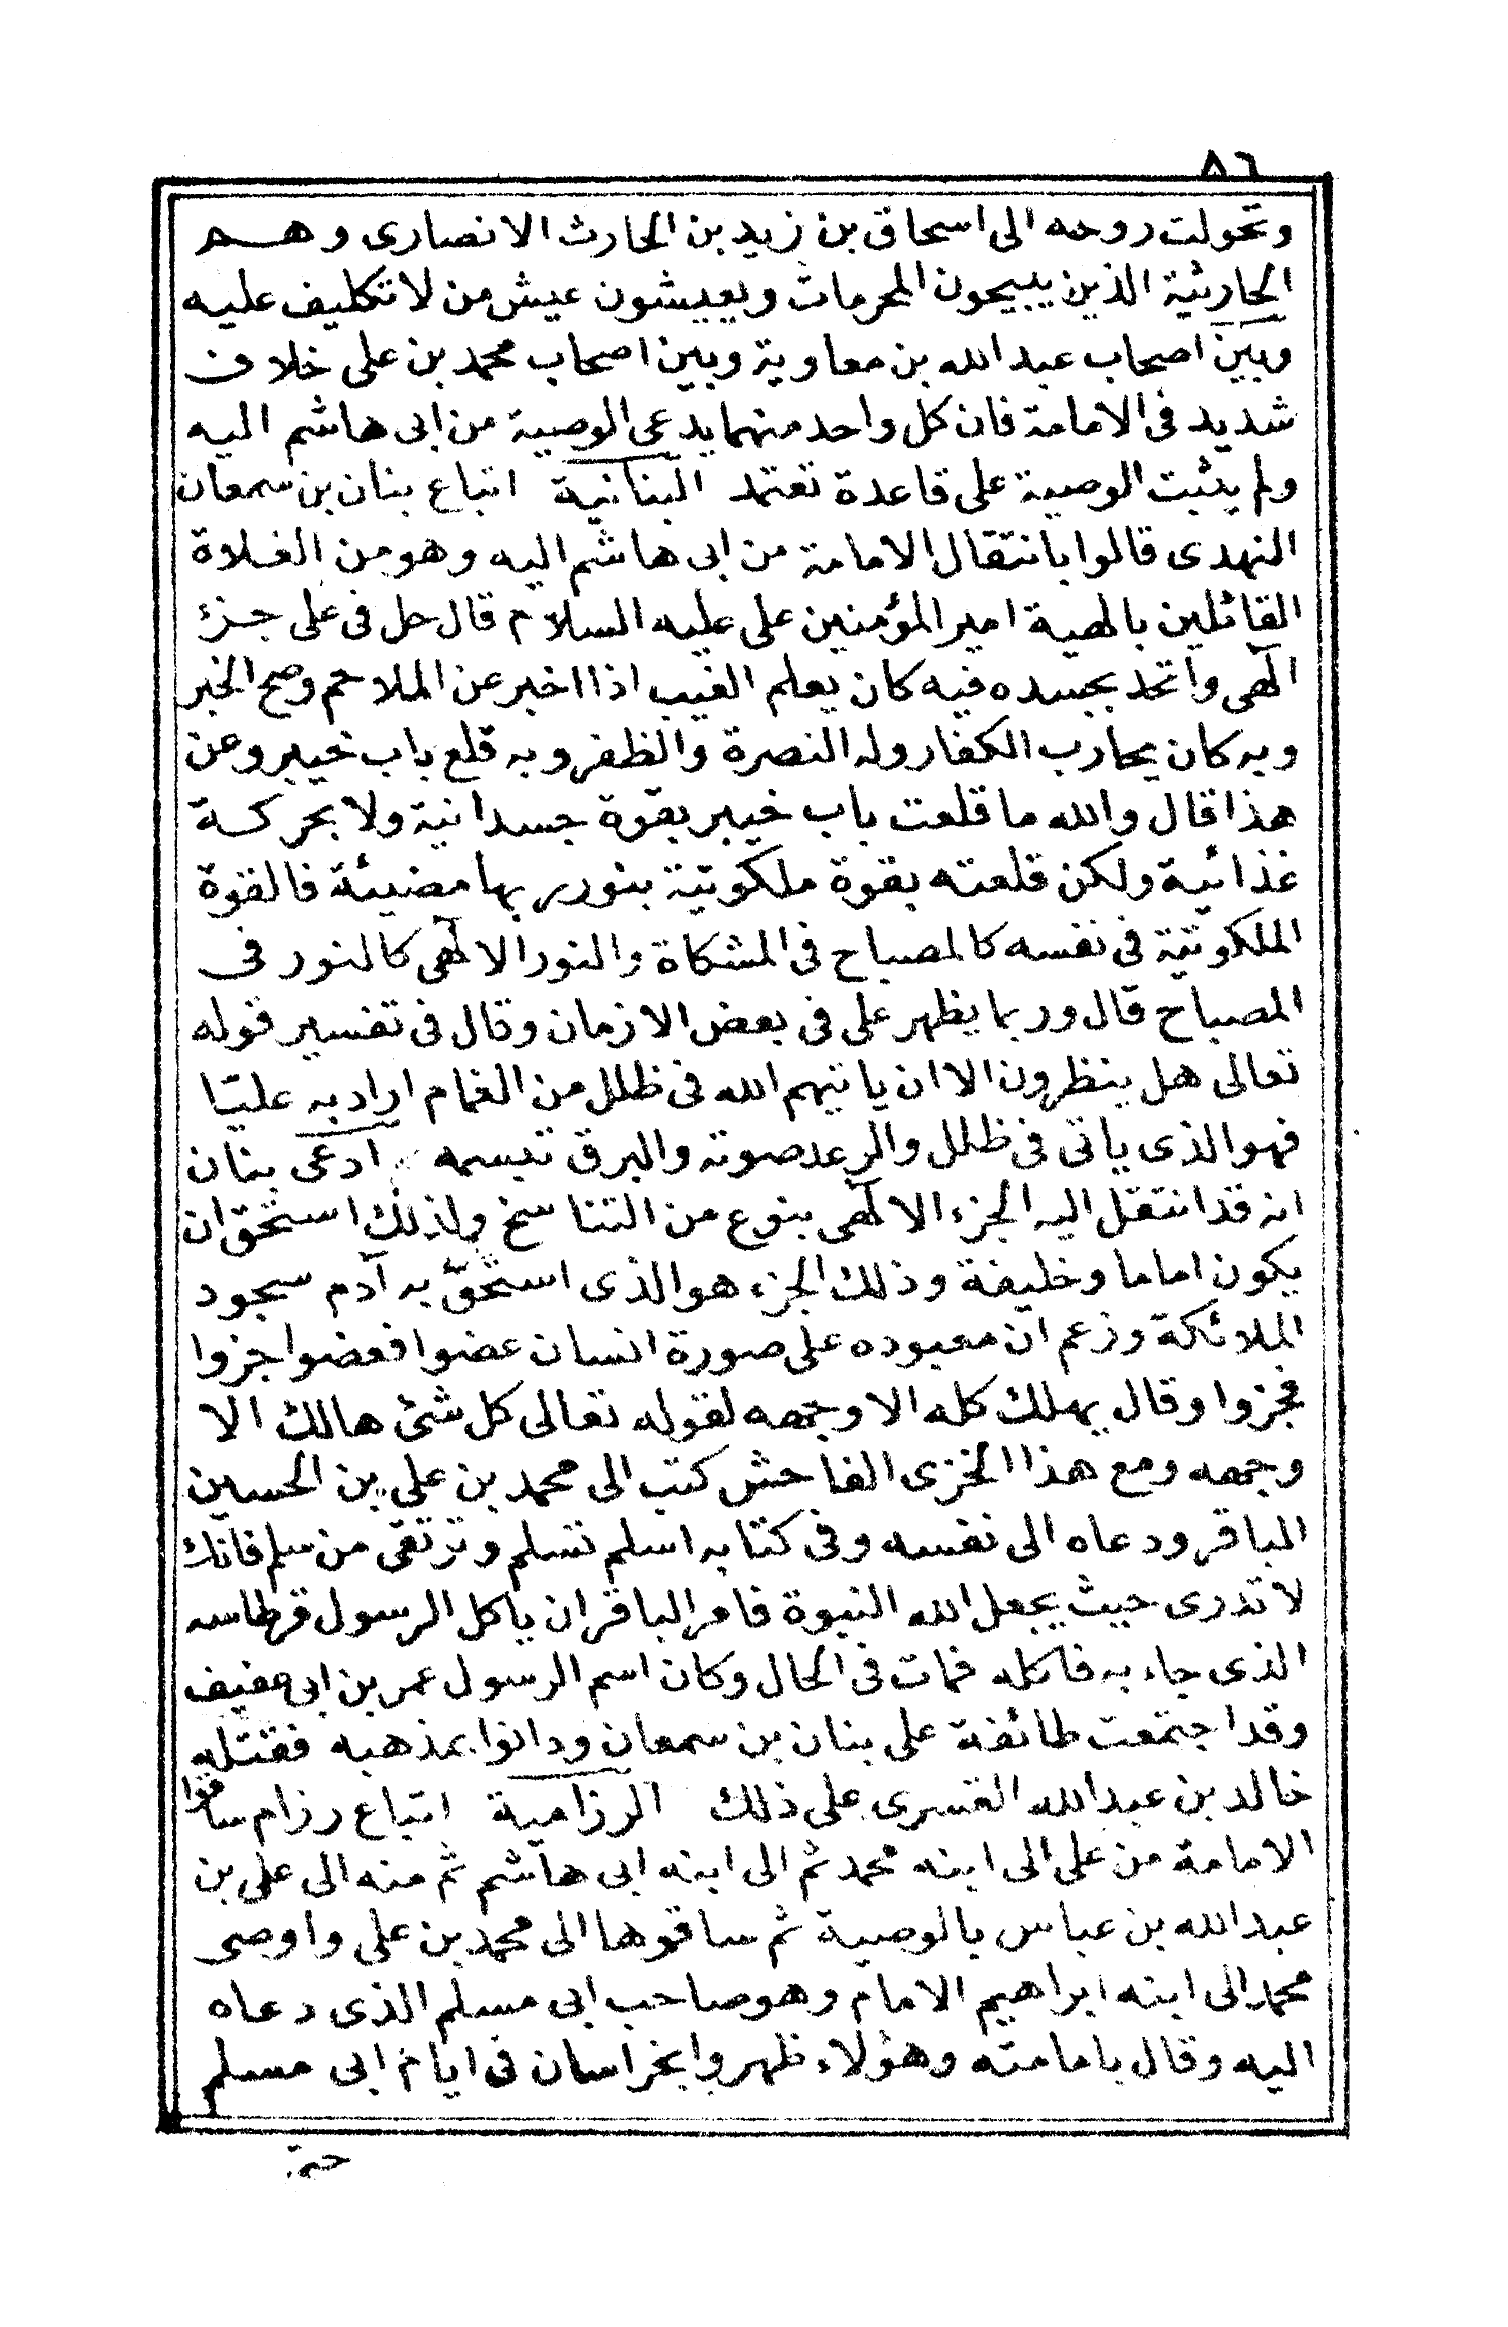 ٨٦
وتحولت روحه الى اسحاق بن زيد بن الحارث الانصارى وهم
الحارثية الذين يبيحون المحرمات ويعيشون عيش من لا تكليف عليه
وبين اصحاب عبد الله بن معاوية وبين اصحاب محمد بن على خلاف
شديد فى الامامة فان كل واحد منهما يدعى الوصية من ابى هاشم اليه
ولم يثبت الوصية على قاعدة تعتمد البنانية اتباع بنان بن سمعان
النهدى قالوا بانتقال الامامة من ابى هاشم اليه وهو من الغلاة
القائلين بالهية امير المؤمنين على عليه السلام قال حل فى على جزئ
الهى واتحد بجسده فيه كان يعلم الغيب اذا اخبر عن الملاحم وصح الخبر
وبه كان يحارب الكفار وله النصرة والظفر وبه قلع باب خيبر وعن
هذا قال والله ما قلعت باب خيبر بقوة جسدانية ولا بحركة
غذائية ولكن قلعته بقوة ملكوتية بنور ربها مضيئة فالقوة
الملكوتية فى نفسه كالمصباح فى المشكاة والنور الالهى كالنور فى
المصباح قال وربما يظهر على فى بعض الازمان وقال فى تفسير قوله
تعالى هل ينظرون الا ان ياتيهم الله فى ظلل من الغمام اراد به عليّا
فهو الذى ياتى فى ظلل والرعد صوته والبرق تبسمه ادعى بنان
انه قد انتقل اليه الجزء الالهى بنوع من التناسخ ولذلك استحق ان
يكون اماما وخليفة وذلك الجزء هو الذى استحقّ به آدم سجود
الملائكة وزعم ان معبوده على صورة انسان عضوا فعضوا جزوا
فجزوا وقال يهلك كله الا وجهه لقوله تعالى كل شئ هالك الا
وجهه ومع هذا الخزى الفاحش كتب الى محمد بن على بن الحسين
الباقر ودعاه الى نفسه وفى كتابه اسلم تسلم وترتقى من سلم فانك
لا تدرى حيث يجعل الله النبوة فامر الباقر ان ياكل الرسول قرطاسه
الذى جاء به فاكله فمات فى الحال وكان اسم الرسول عمر بن ابى عفيف
وقد اجتمعت طائفة على بنان بن سمعان ودانوا بمذهبه فقتله
خالد بن عبد الله القسرى على ذلك الرزامية اتباع رزام ساقوا
الامامة من على الى ابنه محمد ثم الى ابنه ابى هاشم ثم منه الى على بن
عبد الله بن عباس بالوصية ثم ساقوها الى محمد بن على واوصى
محمد الى ابنه ابراهيم الامام وهو صاحب ابى مسلم الذى دعاه
اليه وقال بامامته وهؤلاء ظهروا بخراسان فى ايام ابى مسلم